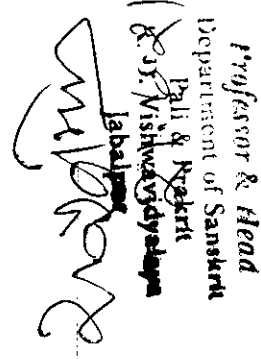 Professor & Head
Department of Sanskrit
Pali & Prakrit
Vishwavidyalaya
Jabalpur